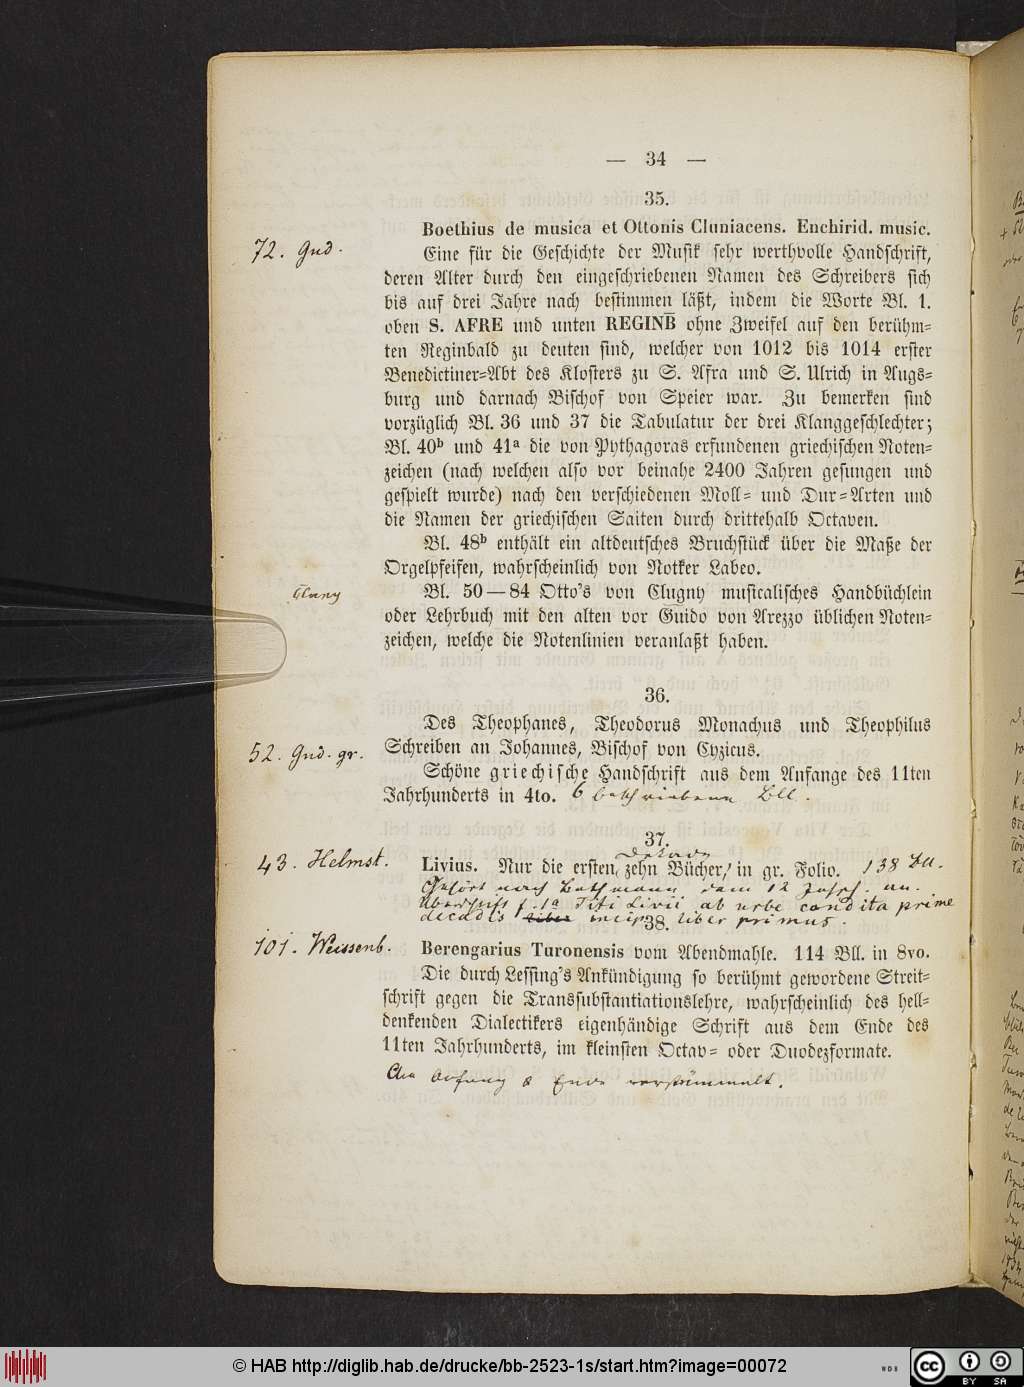 — 34 —
35.
Boethius de musica et Ottonis Cluniacens. Enchirid. music.
72. Gud.
Eine für die Geschichte der Musik sehr werthvolle Handschrift,
deren Alter durch den eingeschriebenen Namen des Schreibers sich
bis auf drei Jahre nach bestimmen läßt, indem die Worte Bl. 1.
oben S. AFRE und unten REGINB̅ ohne Zweifel auf den berühm=
ten Reginbald zu deuten sind, welcher von 1012 bis 1014 erster
Benedictiner=Abt des Klosters zu S. Afra und S. Ulrich in Augs=
burg und darnach Bischof von Speier war. Zu bemerken sind
vorzüglich Bl. 36 und 37 die Tabulatur der drei Klanggeschlechter;
Bl. 40ᵇ und 41ᵃ die von Pythagoras erfundenen griechischen Noten=
zeichen (nach welchen also vor beinahe 2400 Jahren gesungen und
gespielt wurde) nach den verschiedenen Moll= und Dur=Arten und
die Namen der griechischen Saiten durch drittehalb Octaven.
Bl. 48ᵇ enthält ein altdeutsches Bruchstück über die Maße der
Orgelpfeifen, wahrscheinlich von Notker Labeo.
Cluny
Bl. 50—84 Otto's von Clugny musicalisches Handbüchlein
oder Lehrbuch mit den alten vor Guido von Arezzo üblichen Noten=
zeichen, welche die Notenlinien veranlaßt haben.
36.
Des Theophanes, Theodorus Monachus und Theophilus
52. Gud. gr.
Schreiben an Johannes, Bischof von Cyzicus.
Schöne griechische Handschrift aus dem Anfange des 11ten
Jahrhunderts in 4to. 6 beschriebene Bll.
37.
Dekade
43. Helmst.
Livius. Nur die ersten zehn Bücher, in gr. Folio. 138 Bll.
Gehört nach Bethmann dem 12 Jahrh. an.
Überschrift f. 1a Titi Livii ab urbe condita prime
decadis liber incip liber primus.
38.
101. Weissenb.
Berengarius Turonensis vom Abendmahle. 114 Bll. in 8vo.
Die durch Lessing's Ankündigung so berühmt gewordene Streit=
schrift gegen die Transsubstantiationslehre, wahrscheinlich des hell=
denkenden Dialectikers eigenhändige Schrift aus dem Ende des
11ten Jahrhunderts, im kleinsten Octav= oder Duodezformate.
Am Anfang & Ende verstümmelt.
© HAB http://diglib.hab.de/drucke/bb-2523-1s/start.htm?image=00072
WDB
cc BY SA